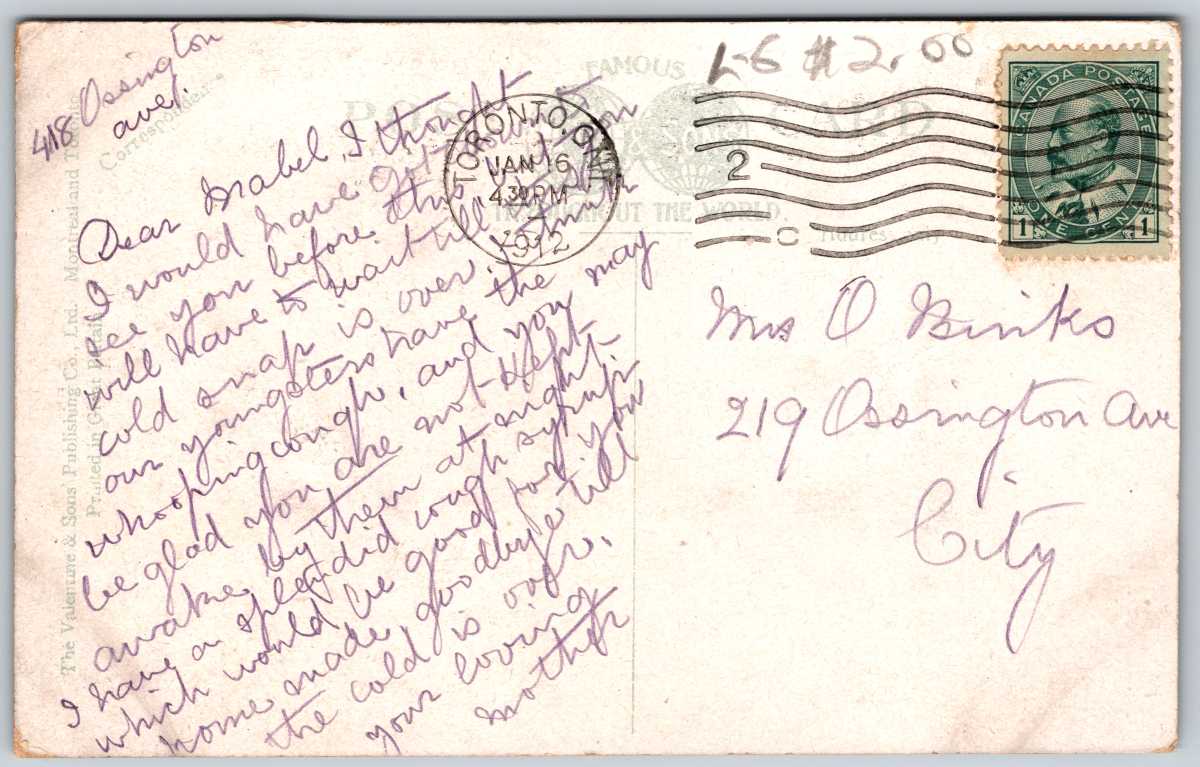 418 Ossington
ave.
Correspondence
Dear Mabel, I thought
I would have got down to
see you before this but I
will have to wait till
cold snap is over.
our youngsters have the
whooping cough, and you may
be glad you are not kept
awake by them at night.
I have a splendid cough syrup
which would be good for you
home made, goodbye till
the cold is over.
your loving
mother
The Valentine & Sons' Publishing Co., Ltd. Montreal and Toronto
Printed in Great Britain
POST CARD
FAMOUS
THROUGHOUT THE WORLD.
TORONTO, ONT.
JAN 16
4 30 PM
1912
2
C
L-6 $2.00
CANADA POSTAGE
1 ONE CENT 1
Mrs O Binks
219 Ossington Ave
City